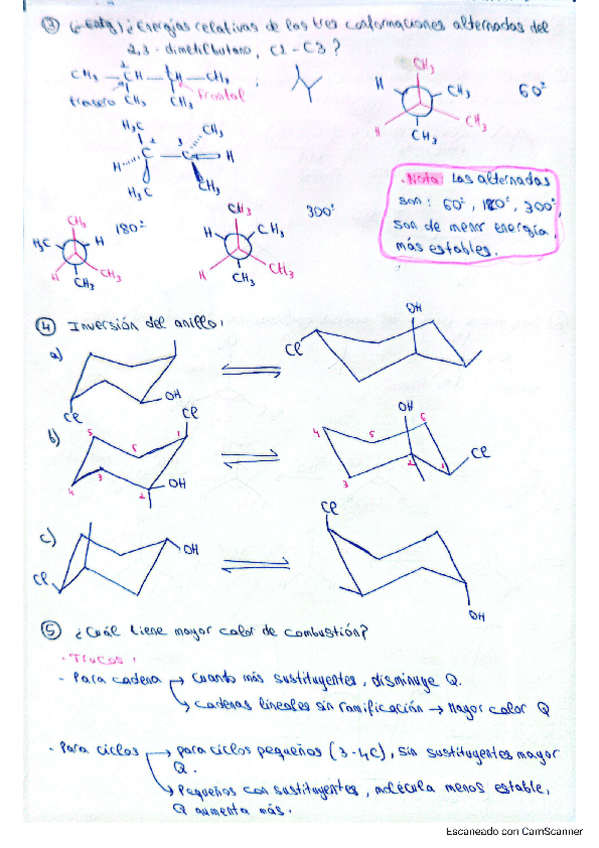 ③ ¿Energías relativas de las tres conformaciones alternadas del
2,3-dimetilbutano, C1-C3?
CH3 - CH - CH - CH3
trasero CH3 CH3 frontal
CH3
H CH3 60°
H CH3
CH3
H3C CH3
2 3
H C C H
H3C CH3
.Nota: Las alternadas
son: 60°, 180°, 300°,
son de menor energía,
más estables.
CH3 180° CH3 300°
H3C H H CH3
H CH3 H CH3
CH3 CH3
④ Inversión del anillo:
a) OH
Cl
OH
Cl
b) Cl OH
5 6 1 4 5 6
OH Cl
4 3 2 3 2 1
c) Cl
OH
Cl
OH
⑤ ¿Cuál tiene mayor calor de combustión?
.Trucos:
- Para cadena → Cuando más sustituyentes, disminuye Q.
→ cadenas lineales sin ramificación → Mayor calor Q
- Para ciclos → para ciclos pequeños (3-4C), sin sustituyentes mayor
Q.
→ Pequeños con sustituyentes, molécula menos estable,
Q aumenta más.
Escaneado con CamScanner